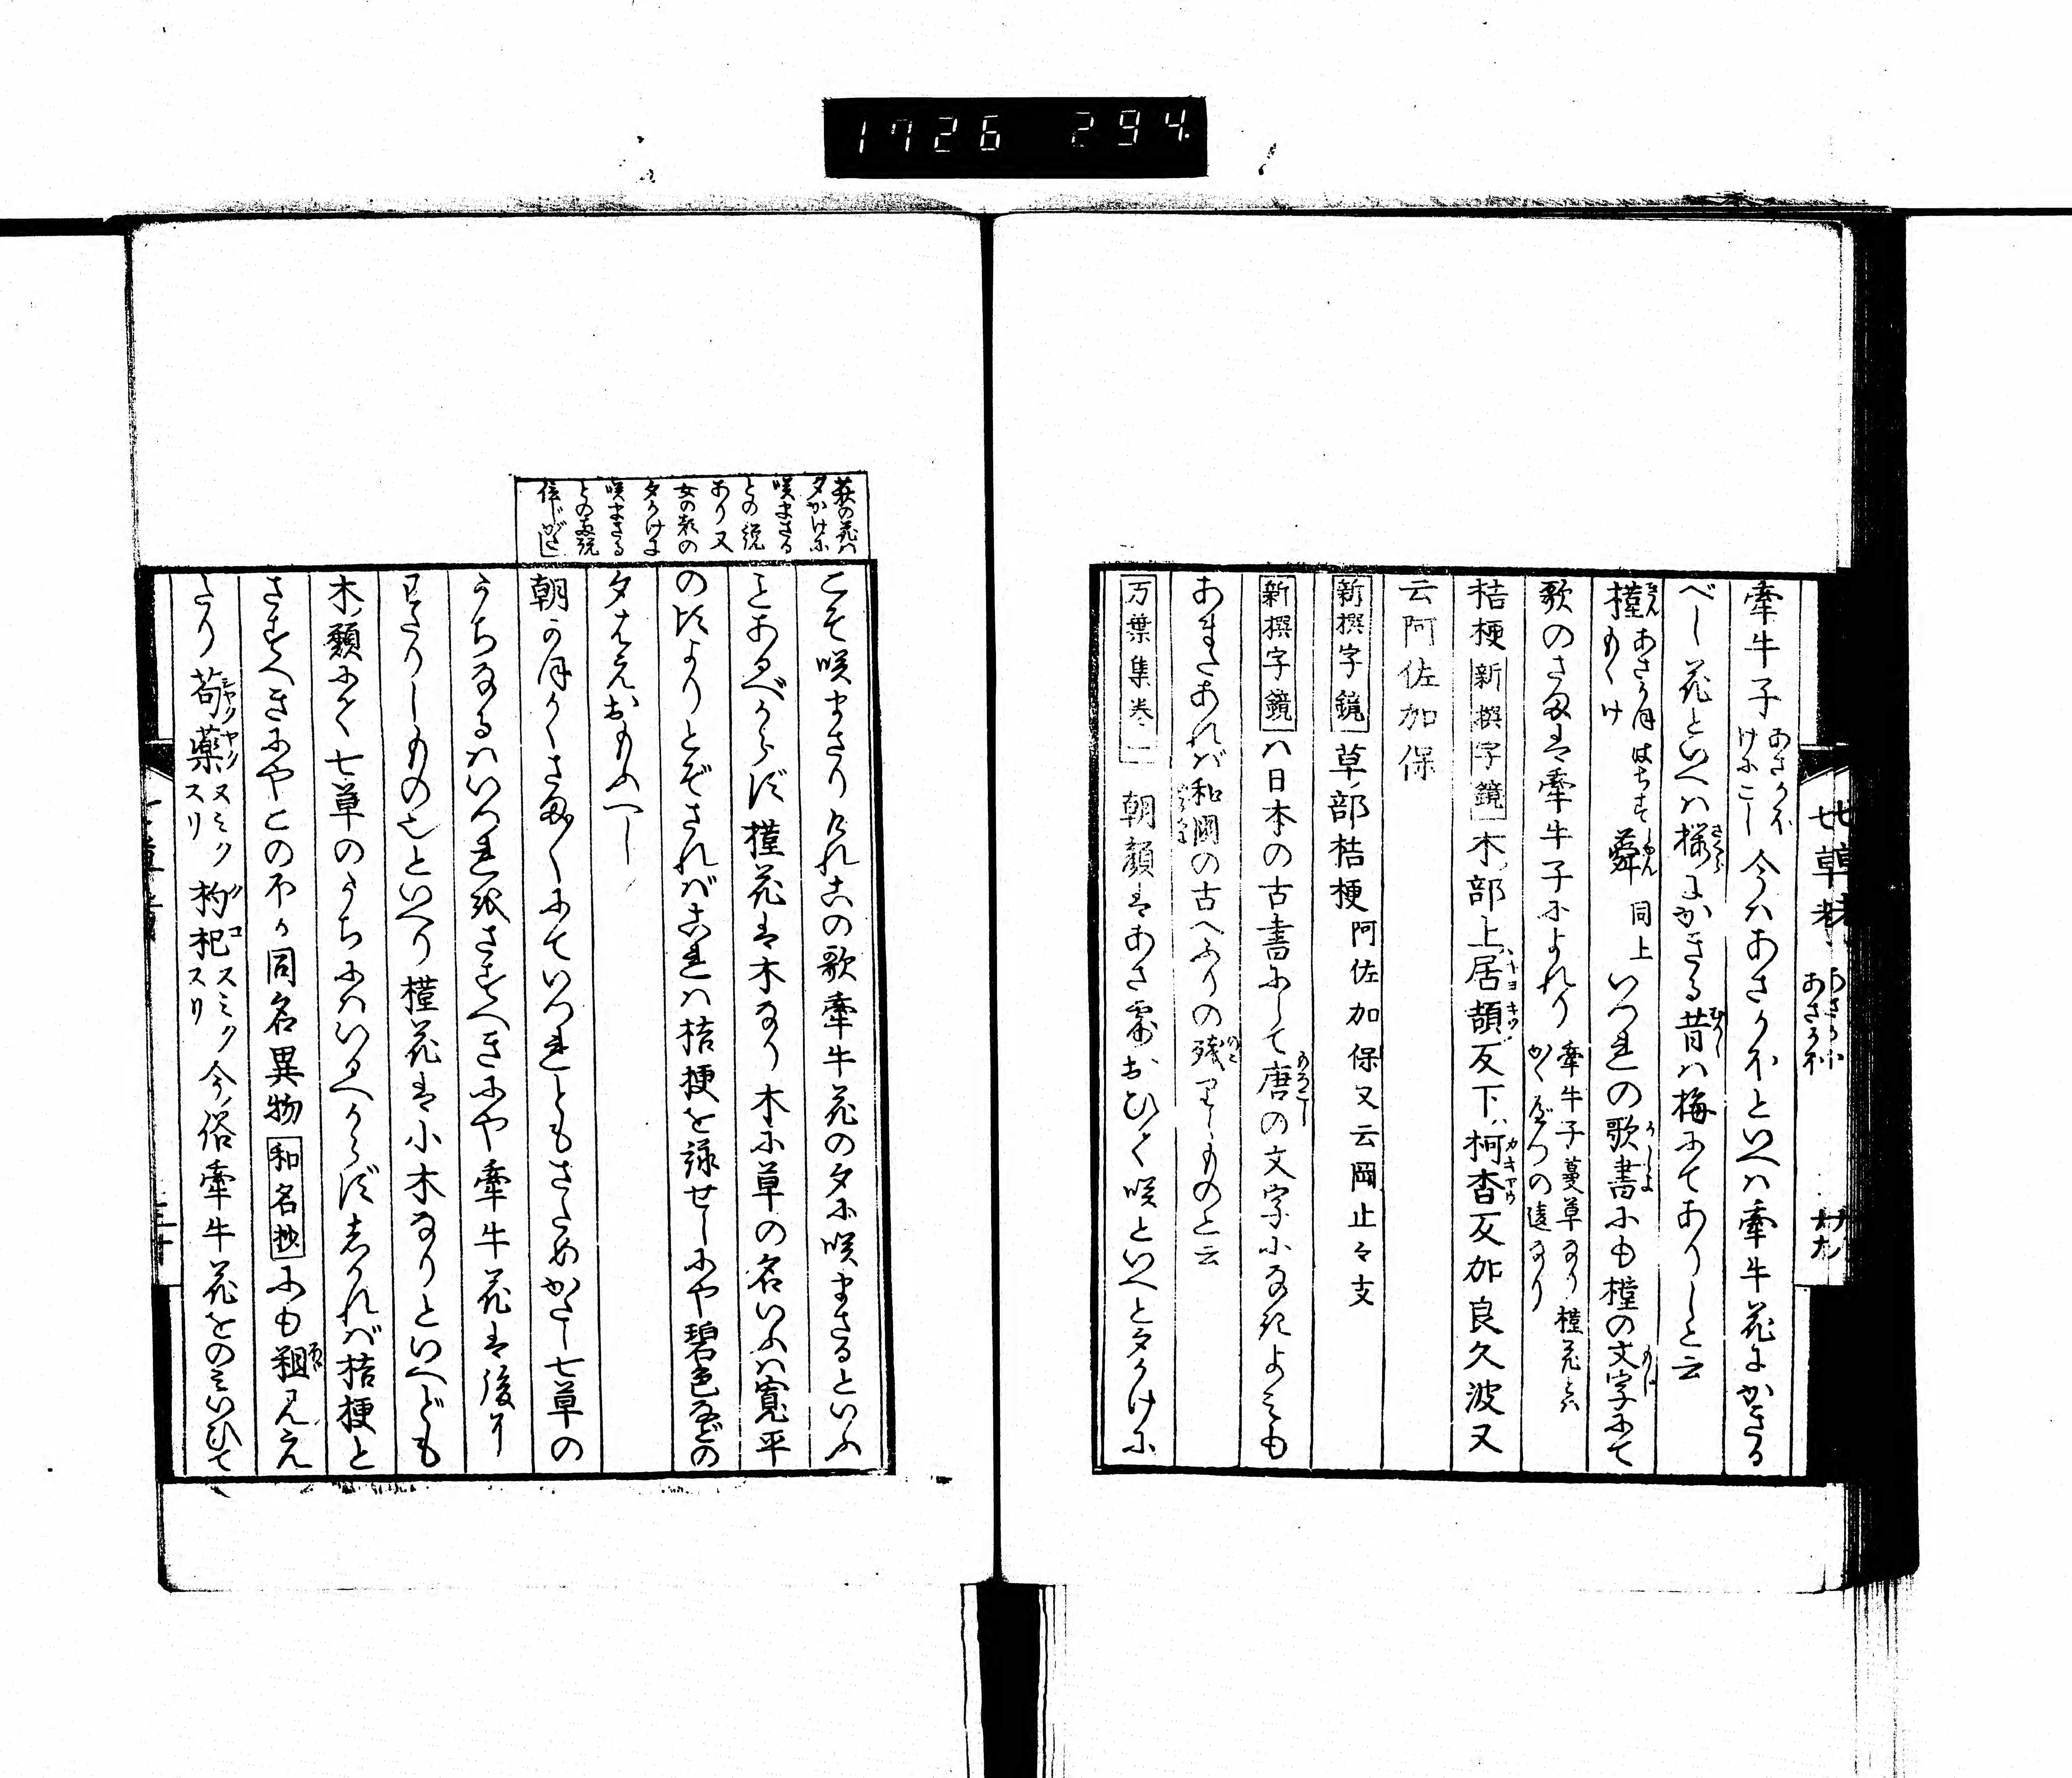 1726 294
牽牛子 あさかほ けにこし 今はあさかほといへは牽牛花にかきる
べし花といへは桜にかきる昔は梅にてありしと云
槿 きん あさかほ はちす もくけ 蕣 しゆん 同上 いつれの歌書にも槿の文字にて
歌のさたは牽牛子によれり 牽牛子蔓草なり槿花とは かくべつの違なり
桔梗 新撰字鏡 木部上居頡反下柯杏反加良久波又
云阿佐加保
新撰字鏡 草部桔梗 阿佐加保又云岡止々支
新撰字鏡 ハ日本の古書にして唐の文字になきよみも
あまたあれバ和国の古へふりの残りしものと云
万葉集巻一 朝顔はあさ露おひて咲といへと夕かけに
こそ咲まさりけれ此の歌牽牛花の夕に咲まさるといふ
ことあるべからず槿花は木なり木に草の名いふハ寛平
の比よりとぞされバ是ハ桔梗を詠せしにや碧色などの
夕はえおもふへし
朝かほかくさたまらにていつれともさためかたし七草の
うちなるハいつれをさすへきにや牽牛花は後に
わたりしもの也といへり槿花は小木なりといへども
木類にて七草のうちにハいるへからずしかれバ桔梗と
さすへきにやこのほか同名異物 和名抄 にも粗見え
たり 芍薬 シヤクヤク ヌミク スリ 枸杞 クコ ヌミク スリ 今俗牽牛花をのみいひて
萩の花ハ
夕かけに
咲まさる
との説
あり又
女の顔の
夕かけに
咲まさる
との両説
信じがたし